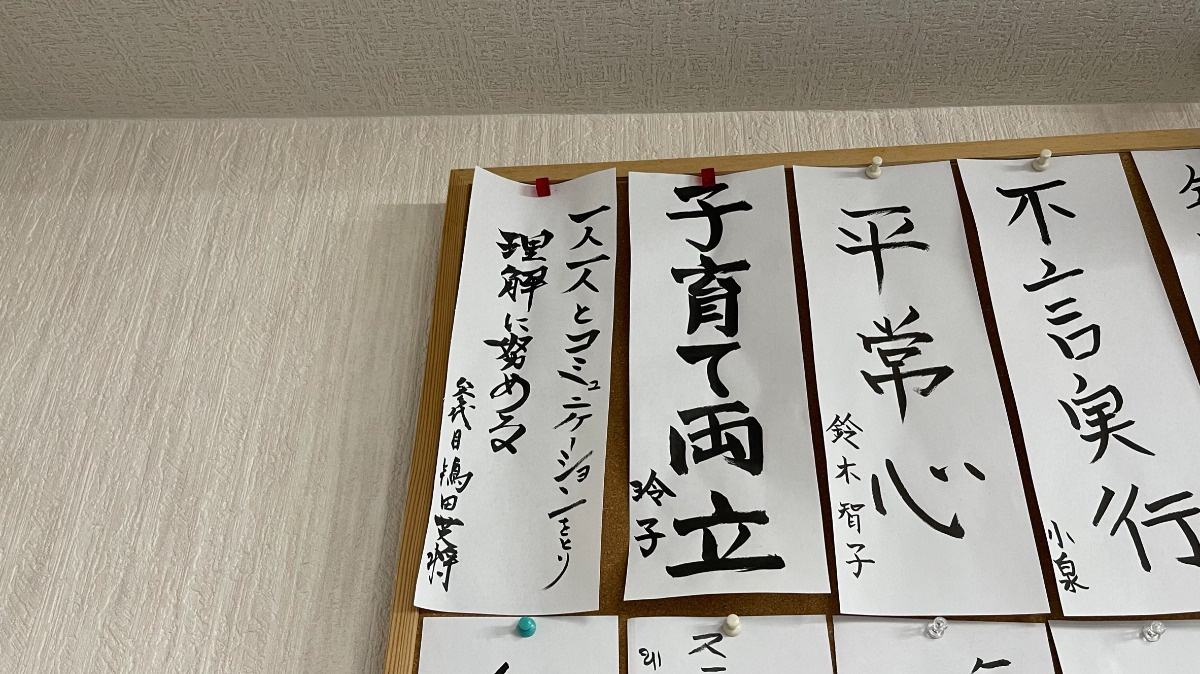 一人一人とコミュニケーションをとり
理解に努める
代目 鴇田
子育て両立
玲子
平常心
鈴木智子
不言実行
小泉